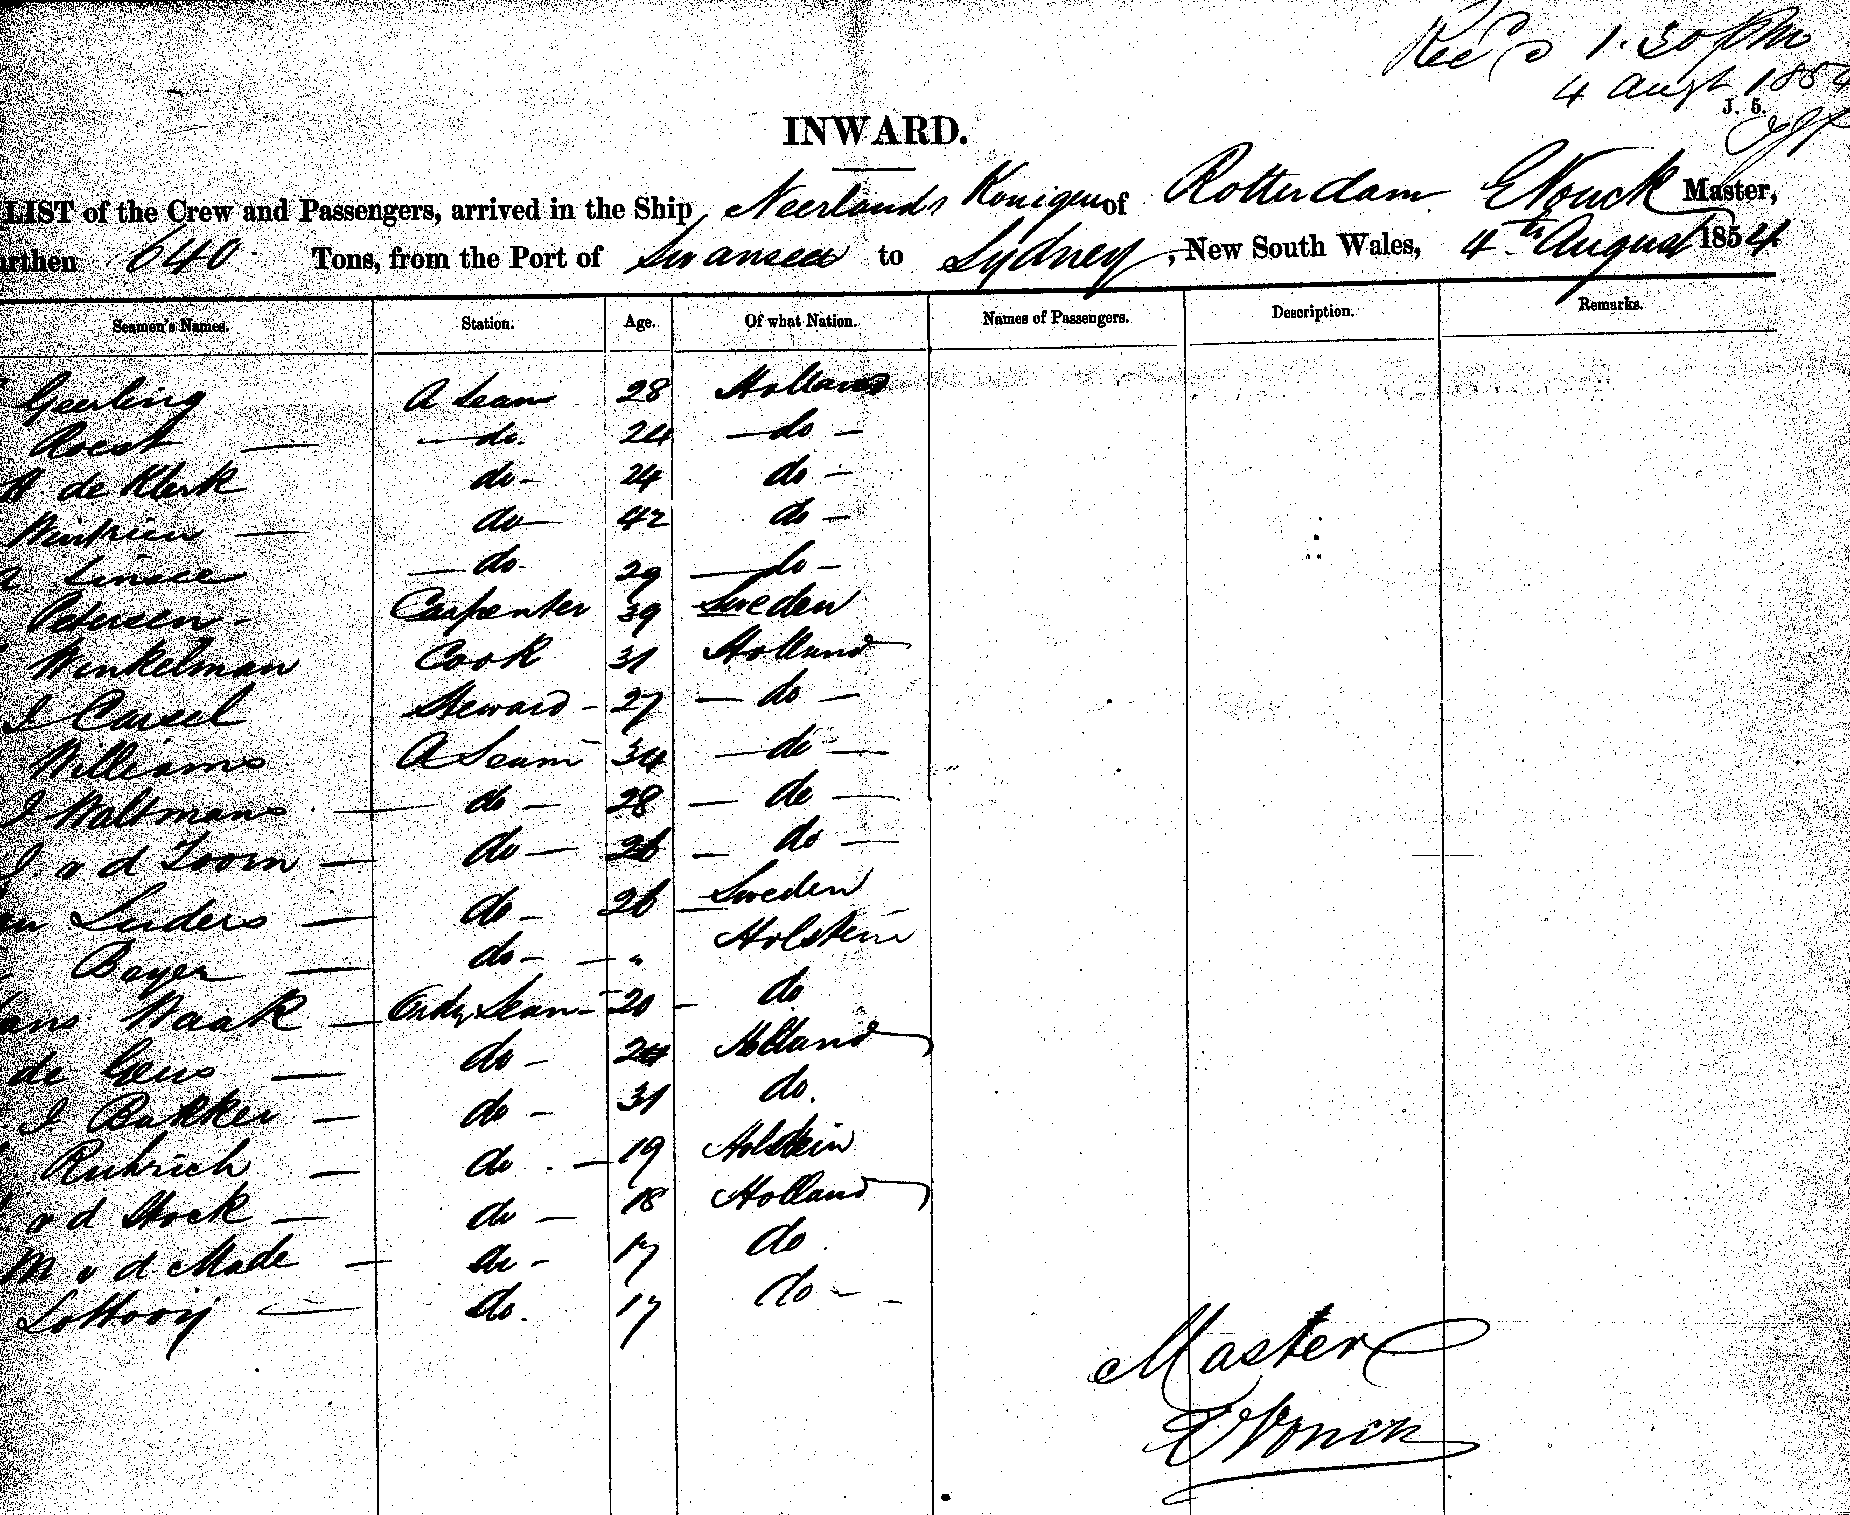 Rec'd 1.30 pm
4 Augt 1854
J. 5.
INWARD.
LIST of the Crew and Passengers, arrived in the Ship Neerlands Konigen of Rotterdam E Vonck Master,
urthen 640 Tons, from the Port of Swansea to Sydney, New South Wales, 4th August 1854
Seamen's Names. Station. Age. Of what Nation. Names of Passengers. Description. Remarks.
Geerling A Seam 28 Holland
Roest — do. 24 — do —
A de Klerk do - 24 do -
do — 42 do -
Linsee — do - 29 — do -
Petersen - Carpenter 39 Sweden
Winkelman Cook 31 Holland
J Carsel Steward - 27 — do —
Williams A Seam 34 — do —
J Woltmans — do — 28 — do —
J v d Toorn — do — 26 — do —
Luders — do - 26 — Sweden
Bayer — do - — " Holstein
ans Waak — Ordy Seam - 20 - do
de Geus — do - 24 Holland
J Bakker — do - 31 do.
Rubrich — do . — 19 Holstein
v d Hoek — do — 18 Holland
M v d Made — do - 17 do
Lottooij — do. 17 do -
Master
E Vonck